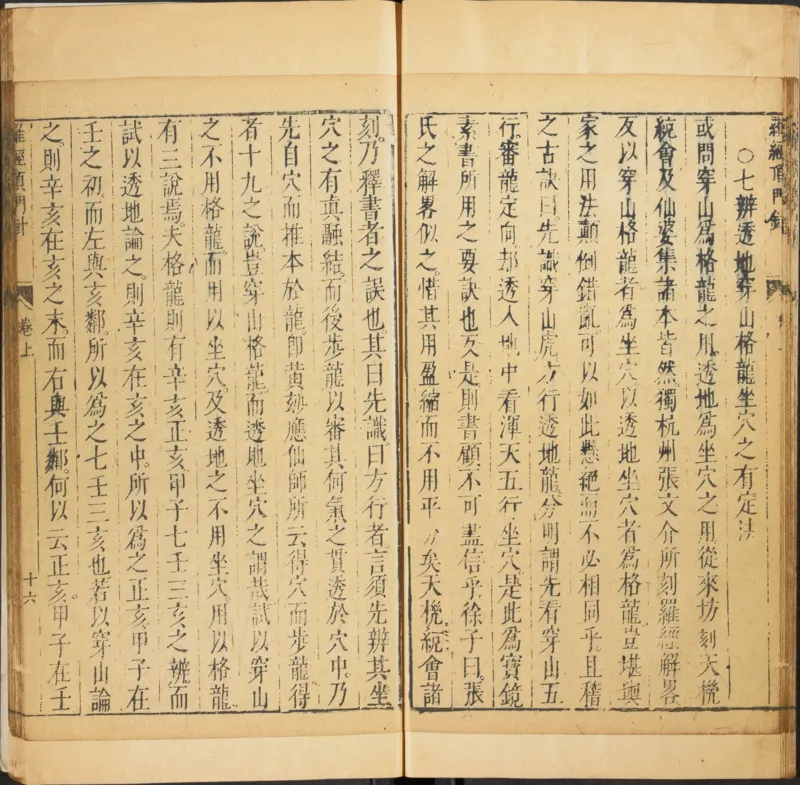 羅經頂門針
○七辨透地穿山格龍坐穴之有定法
或問穿山爲格龍之用透地爲坐穴之用從來坊刻天機
統會及仙婆集諸本皆然獨杭州張文介所刻羅經解畧
反以穿山格龍者爲坐穴以透地坐穴者爲格龍豈堪輿
家之用法顛倒錯亂可以如此懸絕而不必相同乎且稽
之古訣曰先識穿山虎方行透地龍分明謂先看穿山五
行審龍定向却透入地中看渾天五行坐穴是此爲寶鏡
素書所用之要訣也又是則書顧不可盡信乎徐子曰張
氏之解畧似之惜其用盈縮而不用平分矣天機統會諸
刻乃釋書者之誤也其曰先識曰方行者言須先辨其坐
穴之有眞融結而後步龍以審其何氣之貫透於穴中乃
先自穴而推本於龍卽黃妙應仙師所云得穴而步龍得
者十九之說豈穿山格龍而透地坐穴之謂哉試以穿山
之不用格龍而用以坐穴及透地之不用坐穴用以格龍
有三說焉夫格龍則有辛亥正亥甲子七壬三亥之辨而
試以透地論之則辛亥在亥之中所以爲之正亥甲子在
壬之初而左與亥鄰所以爲之七壬三亥也若以穿山論
之則辛亥在亥之末而右與壬鄰何以云正亥甲子在壬
羅經頂門針 卷上 十六